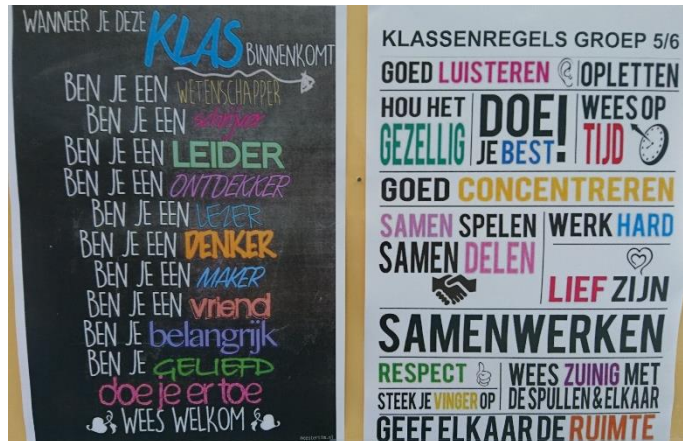 WANNEER JE DEZE
KLAS BINNENKOMT
BEN JE EEN WETENSCHAPPER
BEN JE EEN schrijver
BEN JE EEN LEIDER
BEN JE EEN ONTDEKKER
BEN JE EEN LEZER
BEN JE EEN DENKER
BEN JE EEN MAKER
BEN JE EEN vriend
BEN JE belangrijk
BEN JE GELIEFD
doe je er toe
WEES WELKOM
KLASSENREGELS GROEP 5/6
GOED LUISTEREN
OPLETTEN
HOU HET
GEZELLIG
DOE!
JE BEST
WEES OP
TIJD
GOED CONCENTREREN
SAMEN SPELEN
SAMEN DELEN
WERK HARD
LIEF ZIJN
SAMENWERKEN
RESPECT
STEEK JE VINGER OP
WEES ZUINIG MET
DE SPULLEN & ELKAAR
GEEF ELKAAR DE RUIMTE